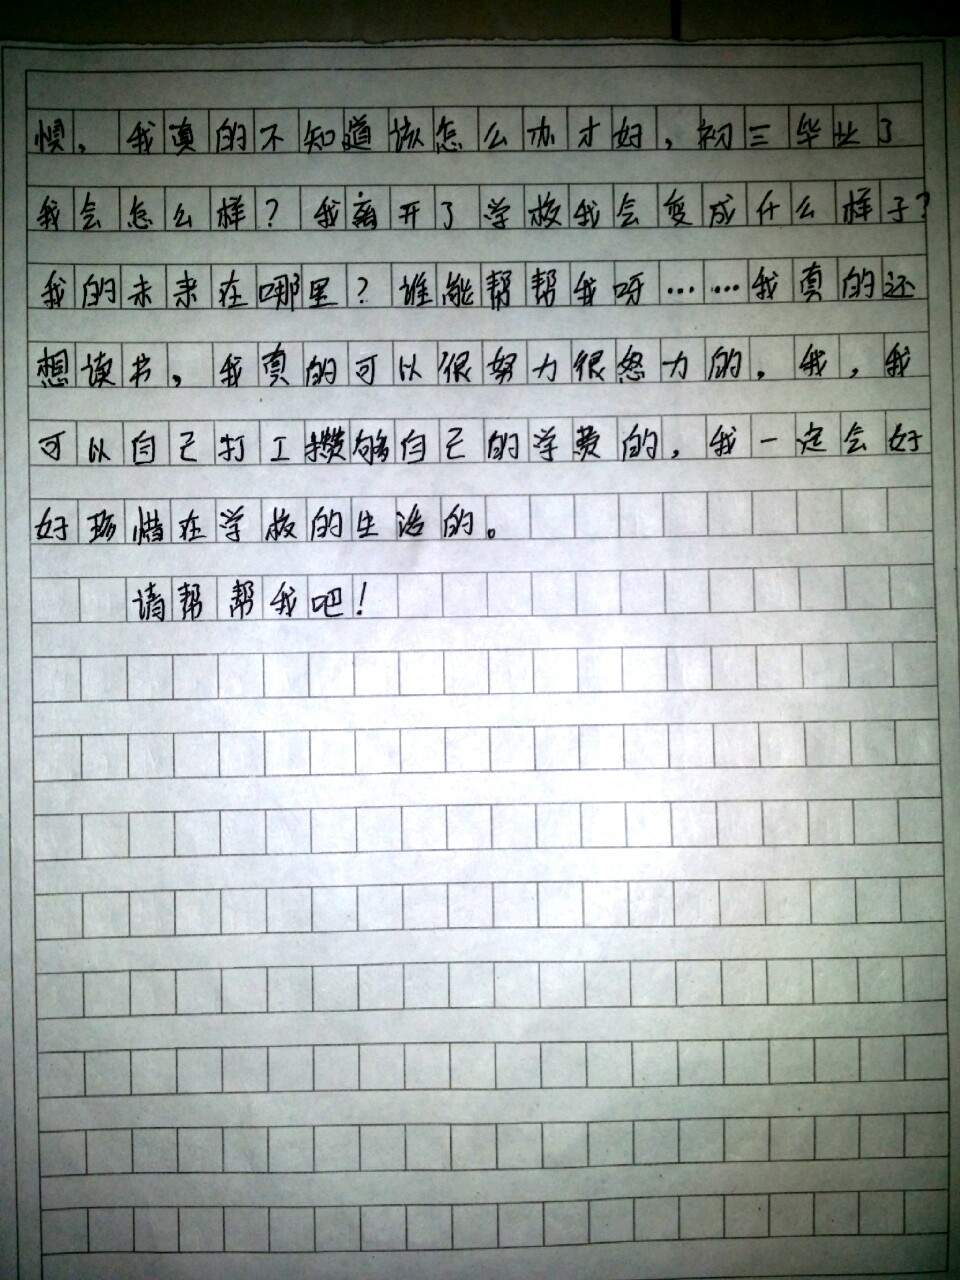 惧，我真的不知道该怎么办才好，初三毕业了
我会怎么样？我离开了学校我会变成什么样子？
我的未来在哪里？谁能帮帮我呀……我真的还
想读书，我真的可以很努力很努力的，我，我
可以自己打工攒够自己的学费的，我一定会好
好珍惜在学校的生活的。
请帮帮我吧！